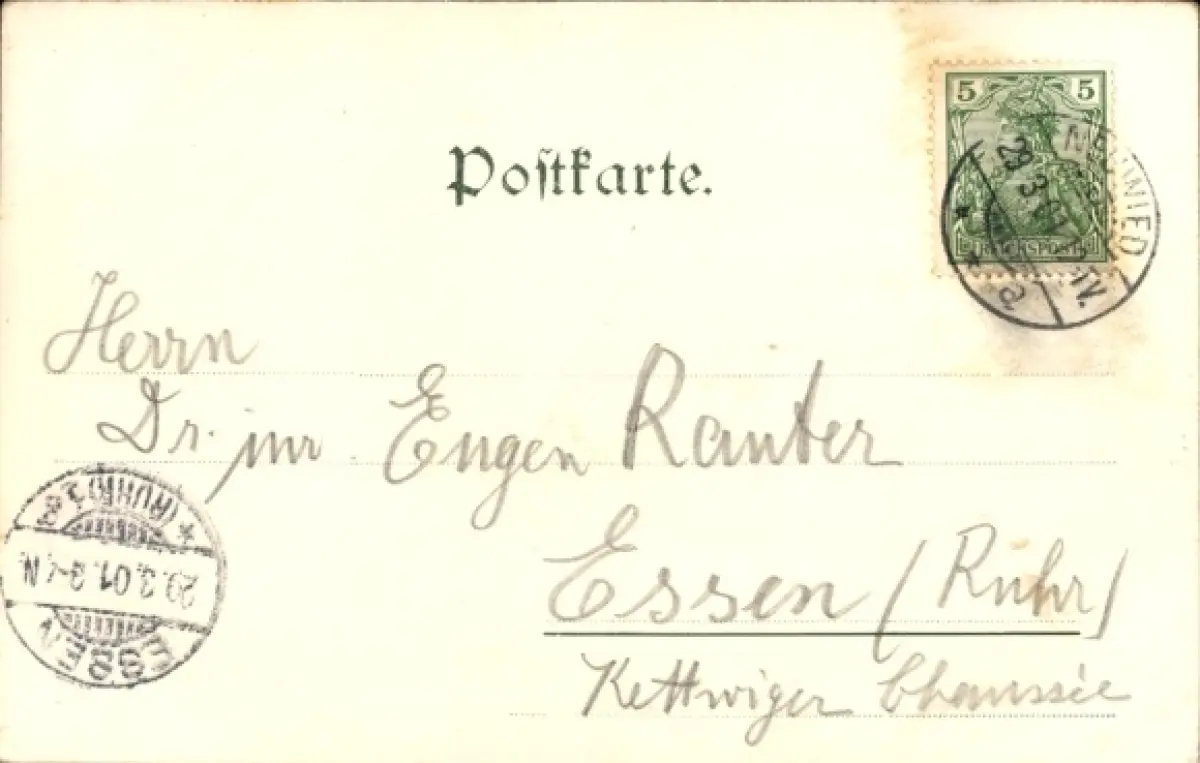 Postkarte.
5 5
REICHSPOST
NEUWIED
29 3 01
* a
Herrn
Dr. jur Eugen Rauter
Essen (Ruhr)
Kettwiger Chaussée
ESSEN
29.3.01. 3-4 N.
* (RUHR)